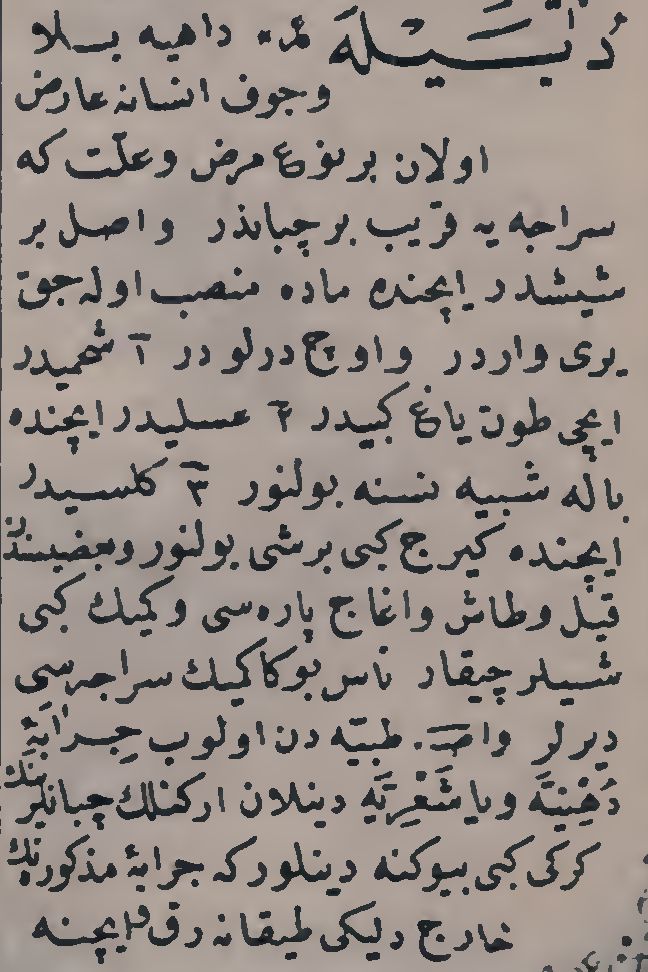 دُبَيْلَه مؤ. داهيه بـلا
وجوف انسانه عارض
اولان بر نوع مرض وعلّت كه
سراجه يه قريب بر چباندر واصل بر
شيشدر ايچنده ماده منصب اوله جق
يرى واردر واوچ درلو در ١ شحميدر
ايچى طوڭ ياغ كبيدر ٢ عسليدر ايچنده
باله شبيه نسنه بولنور ٣ كلسيدر
ايچنده كيرج كبى برشى بولنور وبعضيسندن
قيل وطاش واغاج پاره سى وكميك كبى
شيلر چيقار ناس بوكا كميك سراجه سى
ديرلر واصـ. طبيّه دن اولوب جِرابهٔ
دُهْنِيَّه ويا شَعْرِيَّه دينلان اركنلك چبانلرينك
كركى كبى بيوكنه دينلور كه جرابهٔ مذكوره نك
خارج دليكى طيقانه رق ايچنه